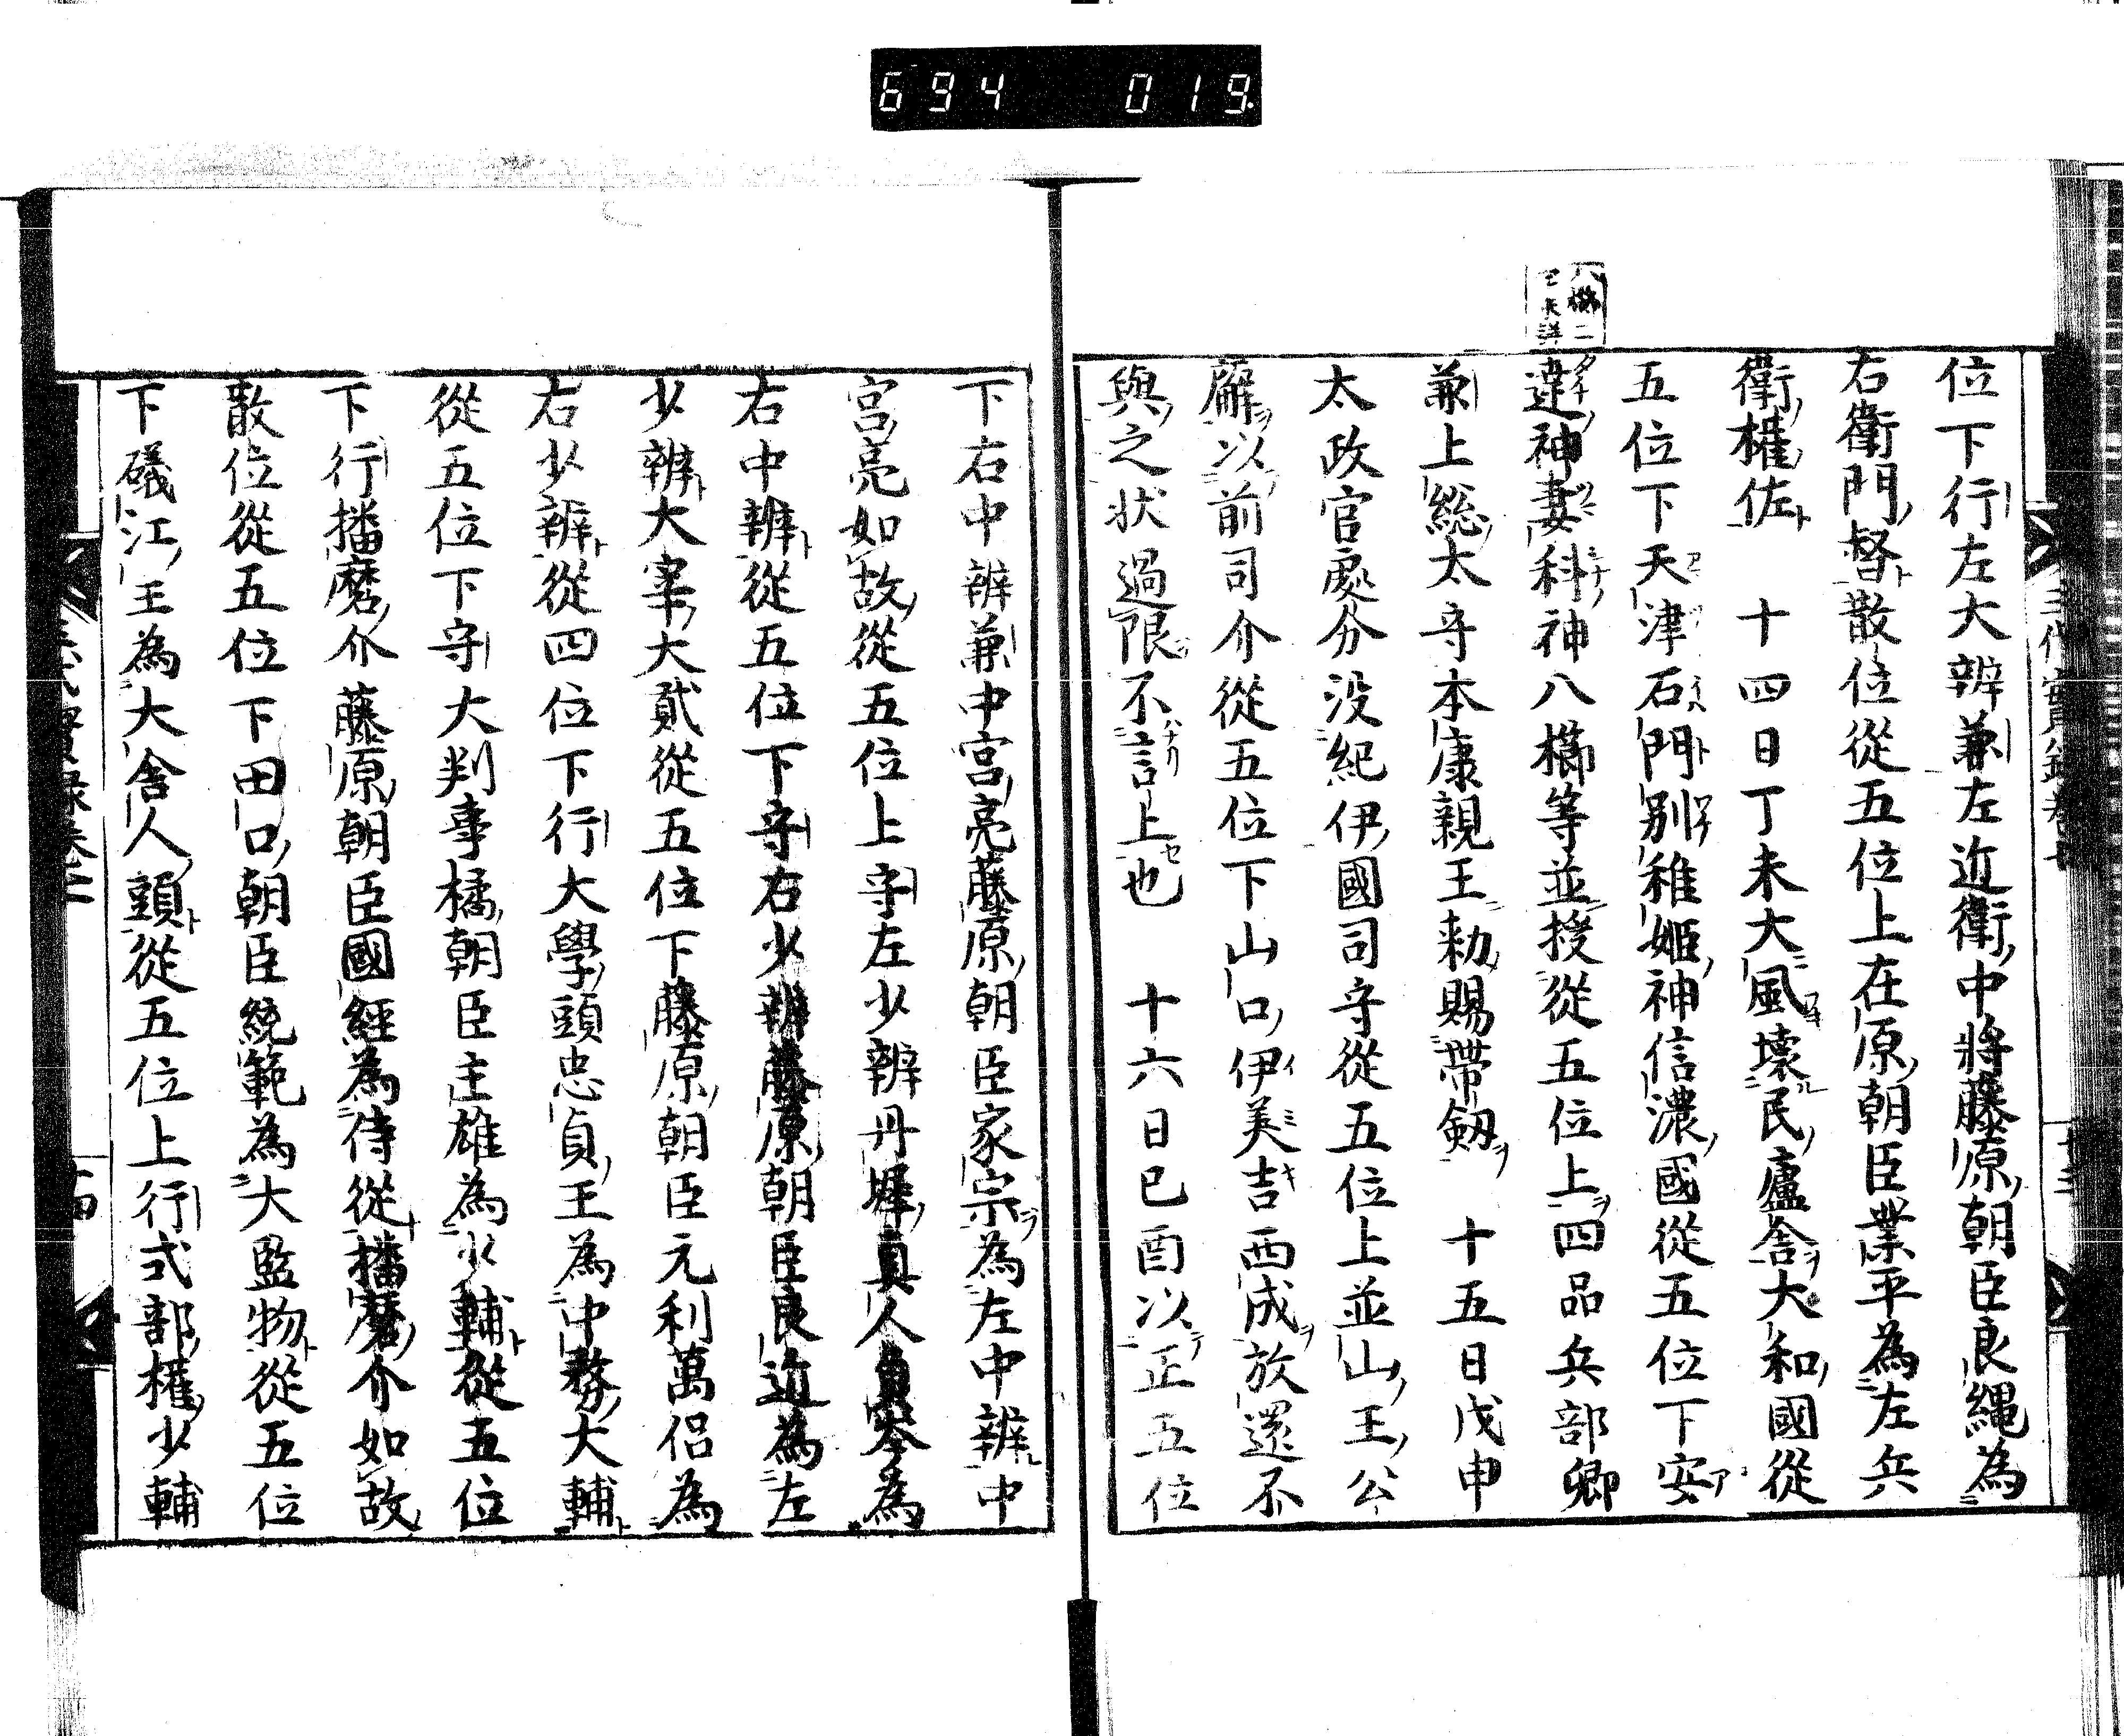 694 019
位下行左大辨兼左近衛中將藤原朝臣良縄為
右衛門督散位從五位上在原朝臣業平為左兵
衛權佐 十四日丁未大風壞民廬舎大和國從
五位下天津石門別稚姫神信濃國從五位下安
達神妻科神八櫛等並授從五位上四品兵部卿
兼上総太守本康親王勑賜帶劔 十五日戊申
太政官處分没紀伊國司守從五位上並山王公
廨以前司介從五位下山口伊美吉西成放還不
與之状過限不言上也 十六日已酉以正五位
下右中辨兼中宮亮藤原朝臣家宗為左中辨中
宮亮如故從五位上守左少辨丹墀真人貞岑為
右中辨從五位下守右少辨藤原朝臣良近為左
少辨大宰大貳從五位下藤原朝臣元利萬侶為
右少辨從四位下行大學頭忠貞王為中務大輔
從五位下守大判事橘朝臣主雄為少輔從五位
下行播磨介藤原朝臣國經為侍從播磨介如故
散位從五位下田口朝臣統範為大監物從五位
下礒江王為大舎人頭從五位上行式部權少輔